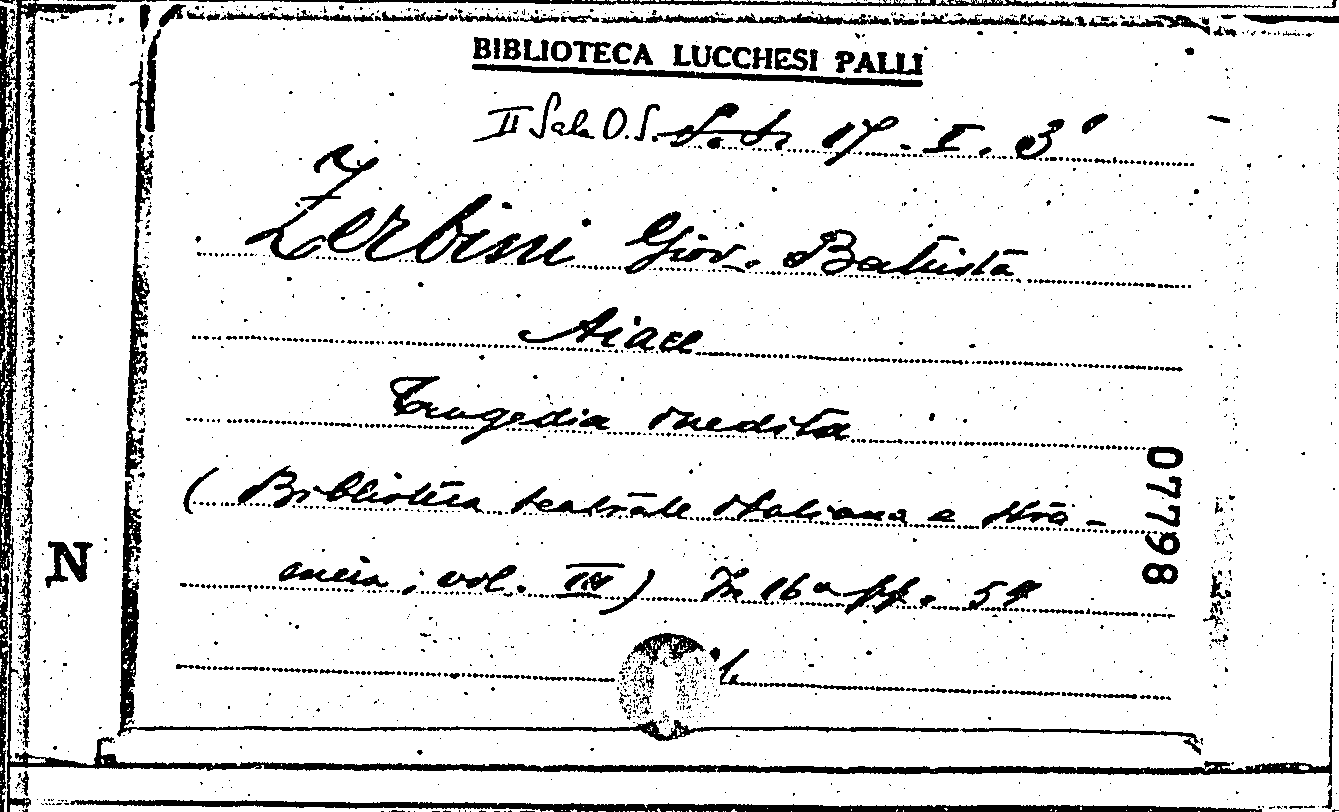 BIBLIOTECA LUCCHESI PALLI
II Sala O.S. 17 - I. 3
Zerbini Giov. Battista
Aiace
Tragedia inedita
(Biblioteca teatrale italiana e stra-
niera; vol. ) In 16° pp. 59
07798
N